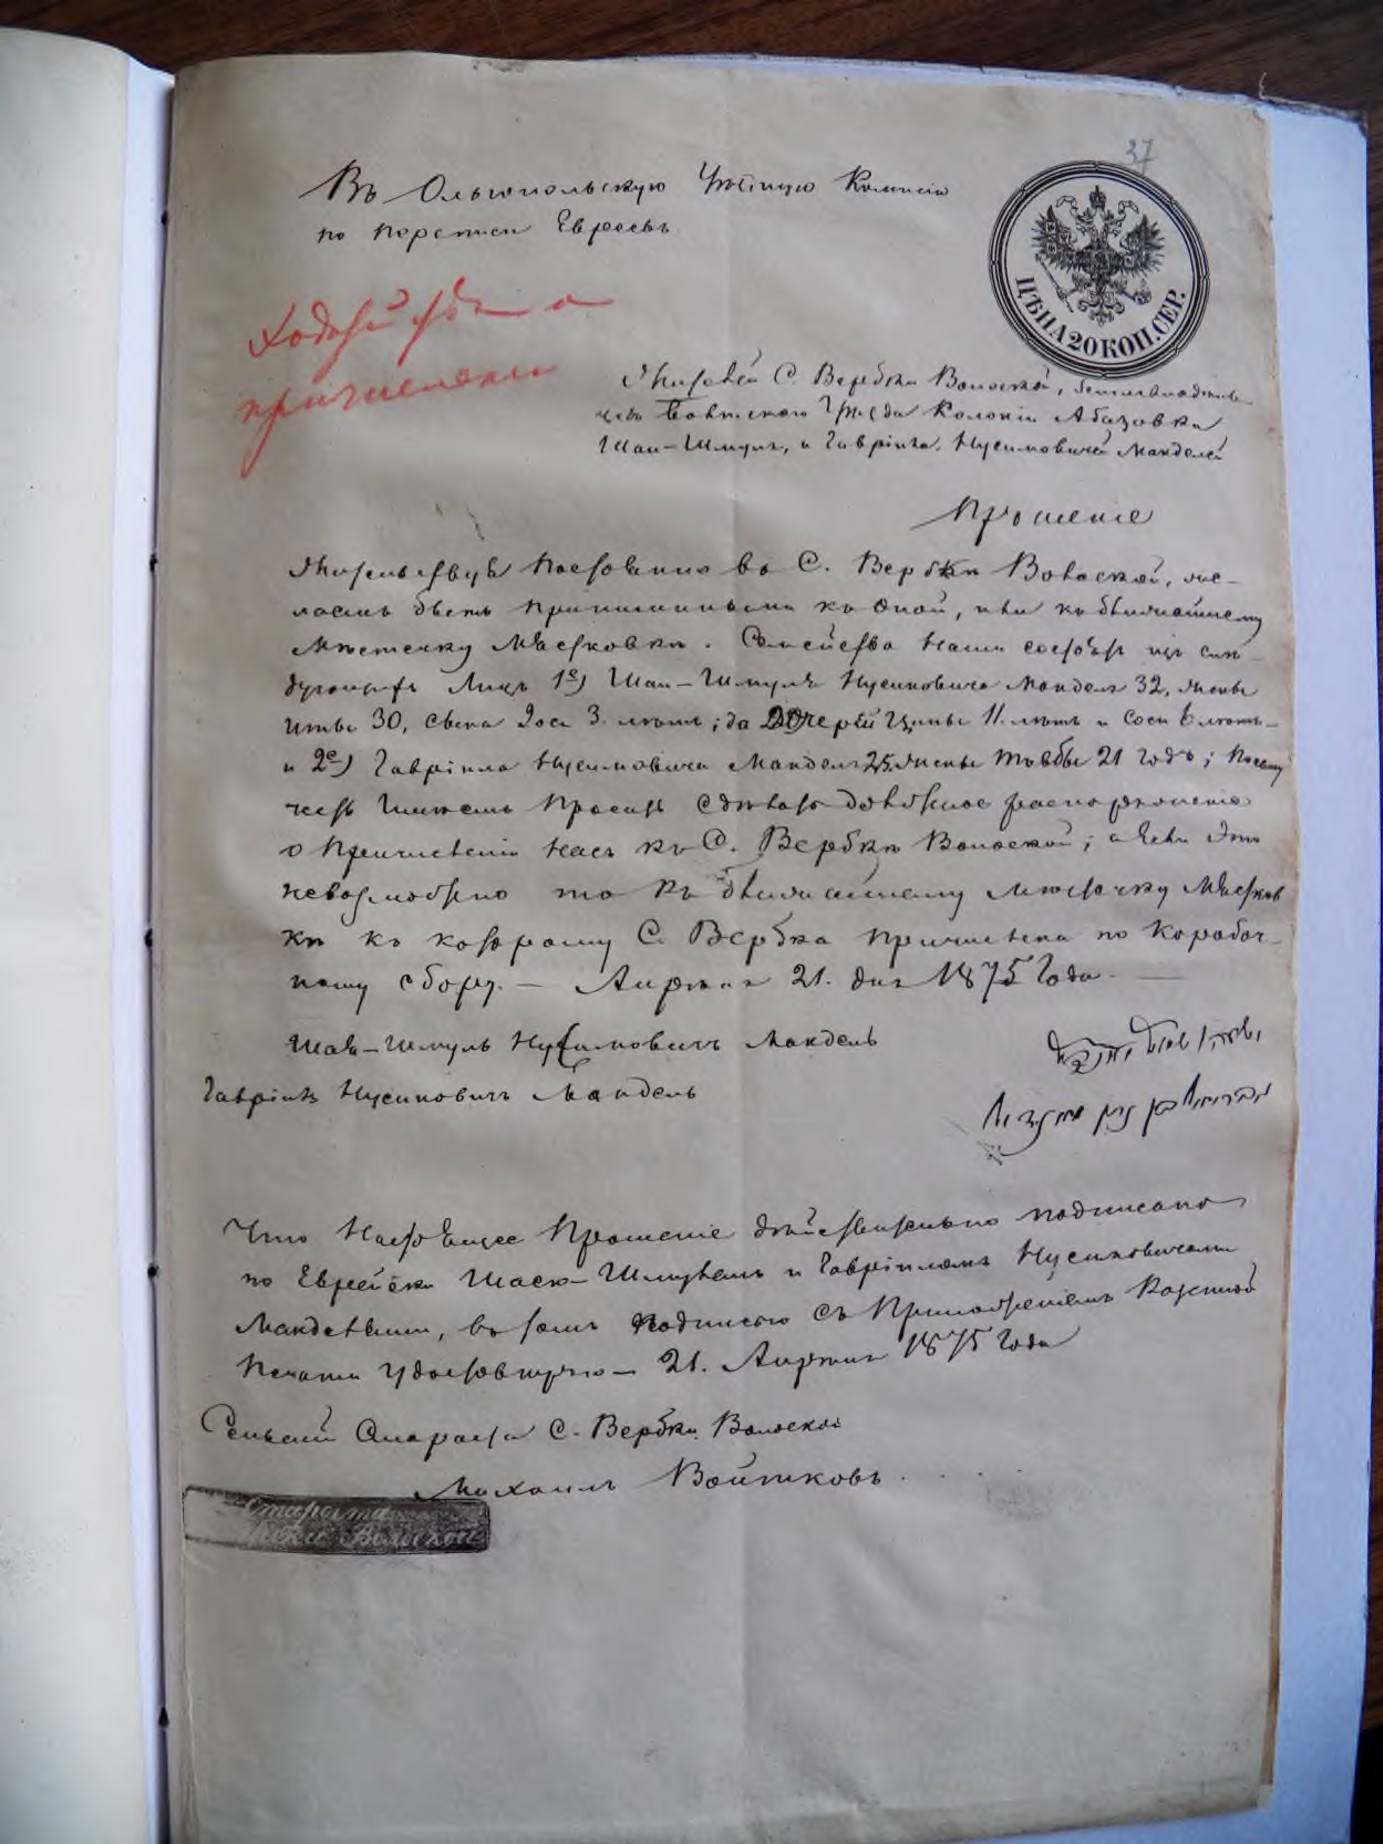 37
Въ Ольгопольскую Уѣздную Комисію
по переписи Евреевъ
ЦѢНА 20 КОП. СЕР.
Ходатайство о
причислении
Жителей С. Вербки Волоской,
Уѣзда Колоніи Абазовки
Шаи-Шмуля, и Гавріила Нусимовичей Манделей
Прошеніе
Жительствуя постоянно во С. Вербки Волоской, же-
лаемъ быть приписанными къ оной, или къ ближайшему
мѣстечку Мястковки. Семейства наши состоятъ изъ слѣ-
дующихъ Лицъ 1е) Шаи-Шмуля Нусимовича Манделя 32, жены
30, сына 3. лѣтъ; да дочерей Ципы 11. лѣтъ и Соси 6 лѣтъ-
и 2е) Гавріила Нусимовича Манделя 25. жены Товбы 21 годъ; Посему
честь имѣемъ просить сдѣлать должное распоряженіе
о причисленіи насъ къ С. Вербки Волоской; а если это
невозможно то къ ближайшему мѣстечку Мястков
ки къ которому С. Вербка причислена по Коробоч-
ному сбору. — Апрѣля 21. дня 1875 Года —
Шая-Шмуль Нусимовичъ Мандель
Гавріилъ Нусимовичъ Мандель
Что настоящее Прошеніе дѣйствительно подписано
по Еврейски Шаею-Шмулемъ и Гавріиломъ Нусимовичами
Манделями, въ томъ подписью съ Приложеніемъ Казенной
Печати удостовѣряю — 21. Апрѣля 1875 Года
Сельскій Староста С. Вербки Волоской
Михаилъ Войтковъ
Староста
Волоской